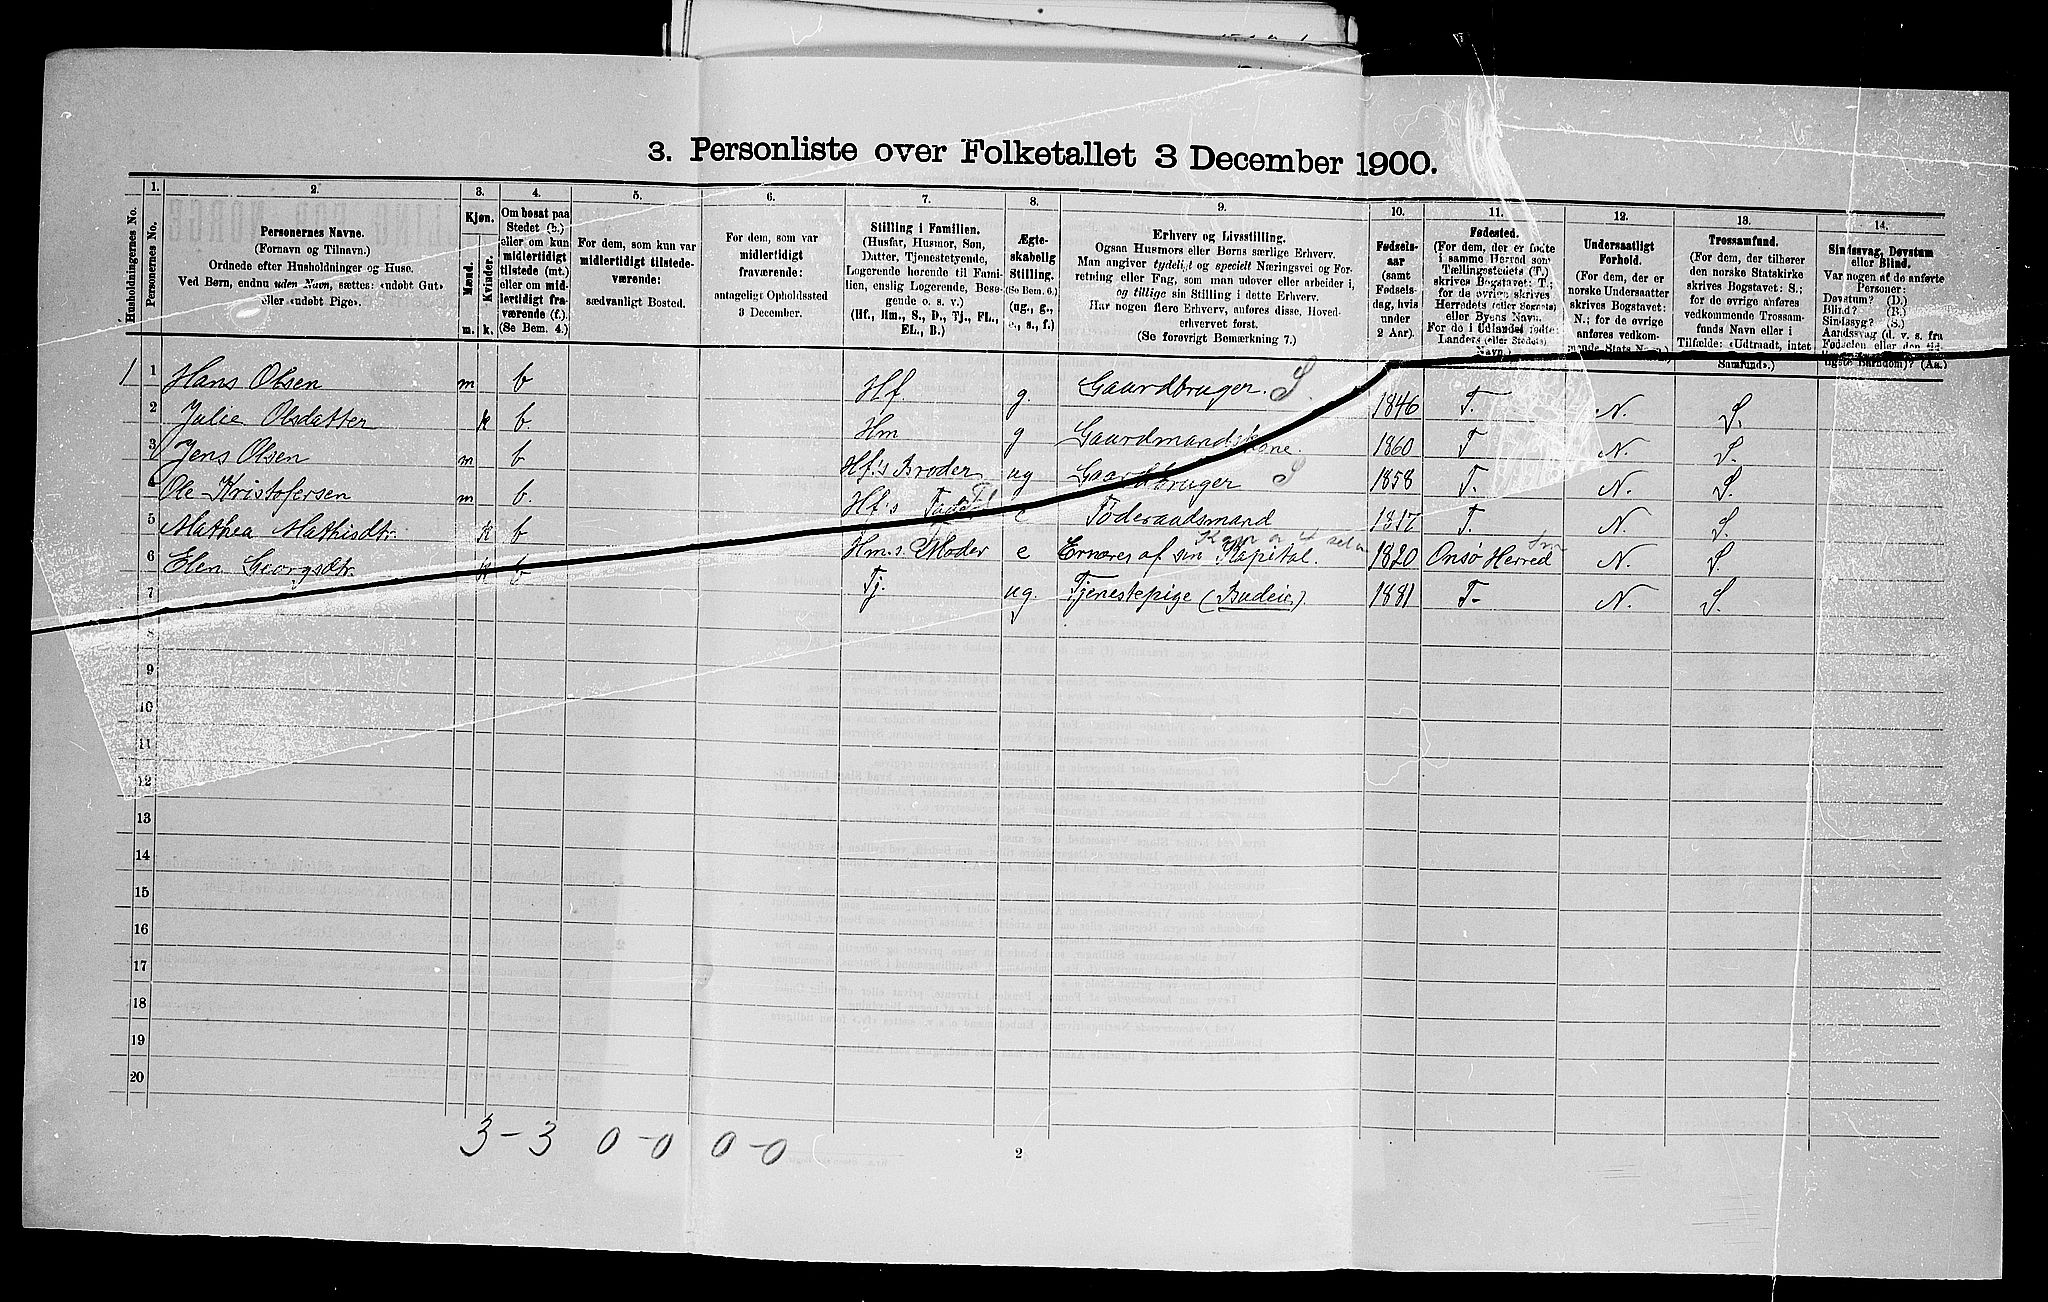 3. Personliste over Folketallet 3 December 1900.
1. 2. 3. 4. 5. 6. 7. 8. 9. 10. 11. 12. 13. 14.
Husholdningernes No.
Personernes No.
Personernes Navne.
(Fornavn og Tilnavn.)
Ordnede efter Husholdninger og Huse.
Ved Børn, endnu uden Navn, sættes: «udøbt Gut»
eller «udøbt Pige».
Kjøn.
Mænd.
Kvinder.
m. k.
Om bosat paa
Stedet (b.)
eller om kun
midlertidigt
tilstede (mt.)
eller om mid-
lertidigt fra-
værende (f.).
(Se Bem. 4.)
For dem, som kun var
midlertidigt tilstede-
værende:
sædvanligt Bosted.
For dem, som var
midlertidigt
fraværende:
antageligt Opholdssted
3 December.
Stilling i Familien.
(Husfar, Husmor, Søn,
Datter, Tjenestetyende,
Logerende hørende til Fami-
lien, enslig Logerende, Besø-
gende o. s. v.)
(Hf., Hm., S., D., Tj., FL.,
EL., B.)
Ægte-
skabelig
Stilling.
(Se Bem. 6.)
(ug., g.,
e., s., f.)
Erhverv og Livsstilling.
Ogsaa Husmors eller Børns særlige Erhverv.
Man angiver tydeligt og specielt Næringsvei og For-
retning eller Fag, som man udøver eller arbeider i,
og tillige sin Stilling i dette Erhverv.
Har nogen flere Erhverv, anføres disse, Hoved-
erhvervet først.
(Se forøvrigt Bemærkning 7.)
Fødsels-
aar
(samt
Fødsels-
dag, hvis
under
2 Aar).
Fødested.
(For dem, der er fødte
i samme Herred som
Tællingsstedets (T.)
skrives Bogstavet: T.;
for de øvrige skrives
Herredets (eller Sognets)
eller Byens Navn.
For de i Udlandet fødte:
Landets (eller Stedets)
Navn.)
Undersaatligt
Forhold.
(For dem, der er
norske Undersaatter
skrives Bogstavet:
N.; for de øvrige
anføres vedkom-
mende Stats Navn.)
Trossamfund.
(For dem, der tilhører
den norske Statskirke
skrives Bogstavet: S.;
for de øvrige anføres
vedkommende Trossam-
funds Navn eller i
Tilfælde: «Udtraadt, intet
Samfund».)
Sindssvag, Døvstum
eller Blind.
Var nogen af de anførte
Personer:
Døvstum? (D.)
Blind? (B.)
Sindssyg? (S.)
Aandssvag (d. v. s. fra
Fødselen eller den tid-
ligste Barndom)? (Aa.)
1 1 Hans Olsen m b Hf g. Gaardbruger. S 1846 T. N. S.
2 Julie Olsdatter k b. Hm g Gaardmandskone. 1860 T N. S.
3 Jens Olsen m b Hf's Broder ug Gaardbruger S 1858 T. N. S.
4 Ole Kristofersen m b. Hf's e Föderaadsmand 1817 T. N. S.
5 Mathea Mathisdtr. k b Hm.s Moder e Ernæres af sin Kapital. 1820 Onsø Herred N. S
6 Elen Georgsdtr. k b Tj. ug. Tjenestepige (Budeie). 1881 T- N. S.
7
8
9
10
11
12
13
14
15
16
17
18
19
20
3-3 0-0 0-0
2